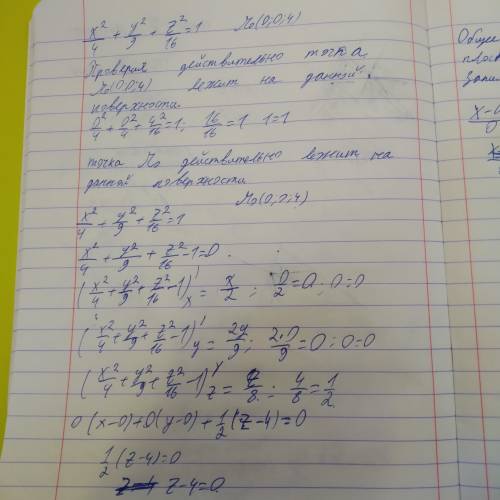 x²/4 + y²/9 + z²/16 = 1   M₀(0;0;4)
Проверим действительно точка
M₀(0;0;4) лежит на данной
поверхности
0²/4 + 0²/4 + 4²/16 = 1; 16/16 = 1  1=1
точка M₀ действительно лежит на
данной поверхности
M₀(0;0;4)
x²/4 + y²/9 + z²/16 = 1
x²/4 + y²/9 + z²/16 - 1 = 0
(x²/4 + y²/9 + z²/16 - 1)'x = x/2; 0/2 = 0; 0=0
(x²/4 + y²/9 + z²/16 - 1)'y = 2y/9; 2·0/9 = 0; 0=0
(x²/4 + y²/9 + z²/16 - 1)'z = z/8; 4/8 = 1/2
0(x-0)+0(y-0)+1/2(z-4)=0
1/2(z-4)=0
z-4=0
Общее
плос
Запи